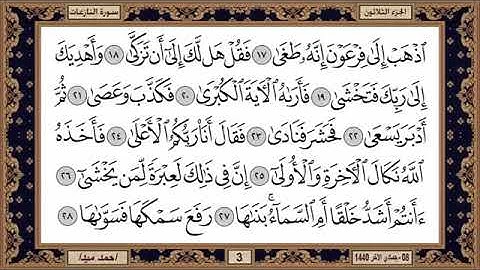 سورة النازعات
الجزء الثلاثون
ٱذْهَبْ إِلَىٰ فِرْعَوْنَ إِنَّهُۥ طَغَىٰ ١٧ فَقُلْ هَل لَّكَ إِلَىٰٓ أَن تَزَكَّىٰ ١٨ وَأَهْدِيَكَ
إِلَىٰ رَبِّكَ فَتَخْشَىٰ ١٩ فَأَرَىٰهُ ٱلْـَٔايَةَ ٱلْكُبْرَىٰ ٢٠ فَكَذَّبَ وَعَصَىٰ ٢١ ثُمَّ
أَدْبَرَ يَسْعَىٰ ٢٢ فَحَشَرَ فَنَادَىٰ ٢٣ فَقَالَ أَنَا۠ رَبُّكُمُ ٱلْأَعْلَىٰ ٢٤ فَأَخَذَهُ
ٱللَّهُ نَكَالَ ٱلْـَٔاخِرَةِ وَٱلْأُولَىٰٓ ٢٥ إِنَّ فِى ذَٰلِكَ لَعِبْرَةً لِّمَن يَخْشَىٰٓ ٢٦
ءَأَنتُمْ أَشَدُّ خَلْقًا أَمِ ٱلسَّمَآءُ ۚ بَنَىٰهَا ٢٧ رَفَعَ سَمْكَهَا فَسَوَّىٰهَا ٢٨
08 - جمادى الآخر 1440
3
أحمد ميلا